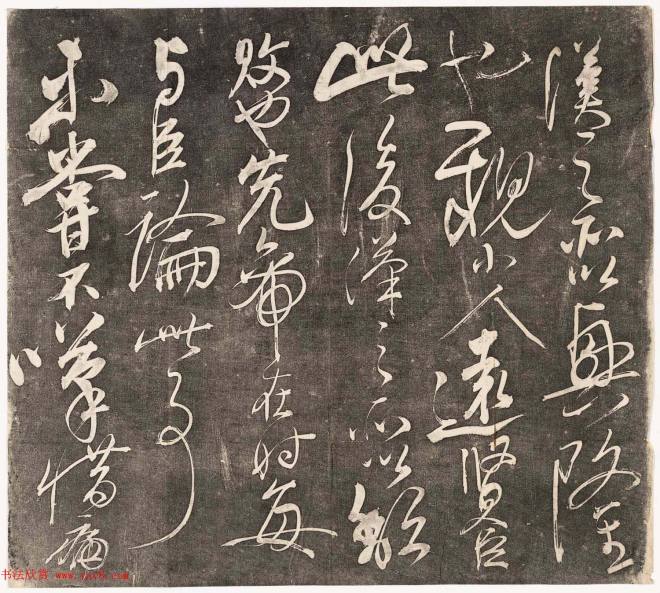 漢之所以興隆
也親小人遠賢臣
此後漢之所以傾
頹也先帝在時每
与臣論此事
未嘗不嘆惜痛
书法欣赏 www.yac8.com